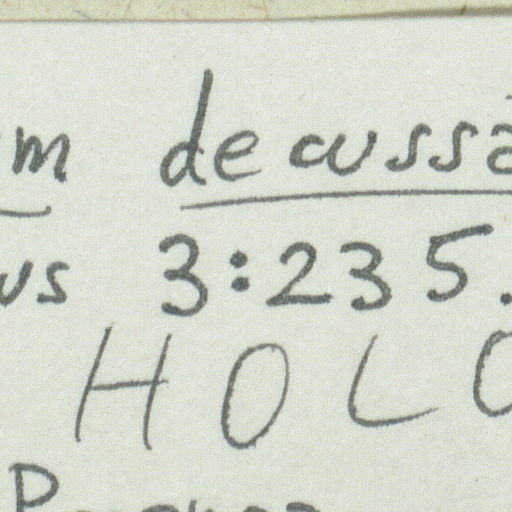 um decussa
us 3:235.
HOLO